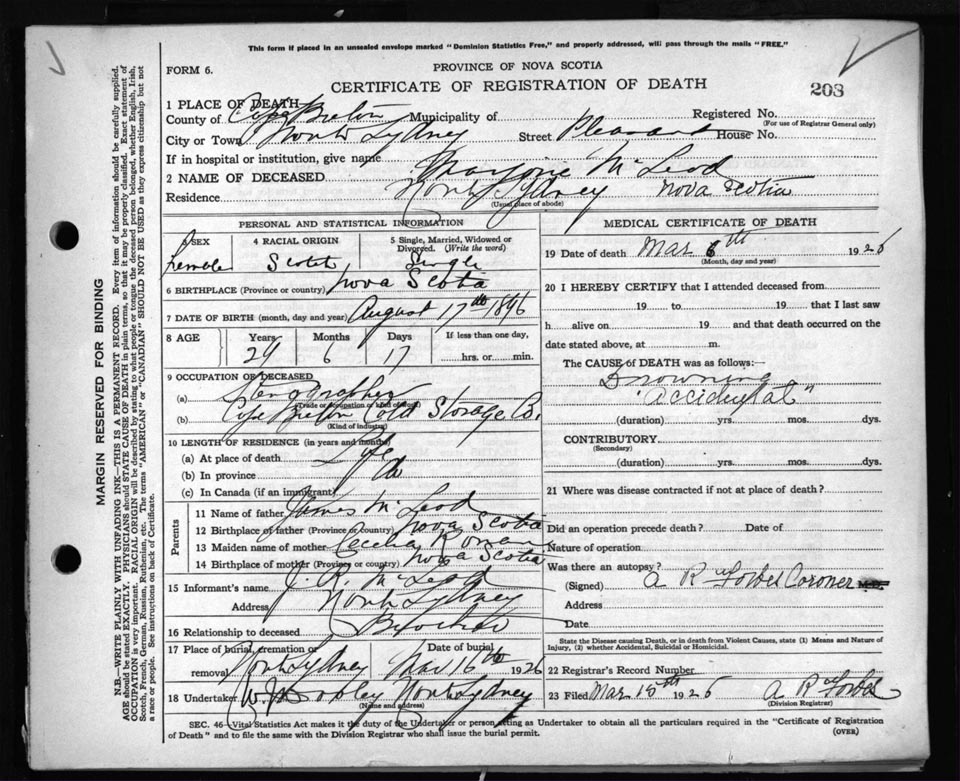 This form if placed in an unsealed envelope marked "Dominion Statistics Free," and properly addressed, will pass through the mails "FREE."
FORM 6.
PROVINCE OF NOVA SCOTIA
CERTIFICATE OF REGISTRATION OF DEATH
203
1 PLACE OF DEATH
County of Cape Breton Municipality of Registered No.
(For use of Registrar General only)
City or Town North Sydney Street Pleasant House No.
If in hospital or institution, give name
2 NAME OF DECEASED Marjorie McLeod
Residence North Sydney Nova Scotia
(Usual place of abode)
PERSONAL AND STATISTICAL INFORMATION
3 SEX 4 RACIAL ORIGIN 5 Single, Married, Widowed or Divorced. (Write the word)
Female Scotch Single
6 BIRTHPLACE (Province or country) Nova Scotia
7 DATE OF BIRTH (month, day and year) August 17th 1896
8 AGE Years Months Days If less than one day,
29 6 17 hrs. or min.
9 OCCUPATION OF DECEASED
(a) Stenographer
(Trade or occupation or kind of work)
(b) Cape Breton Cold Storage Co.
(Kind of industry)
10 LENGTH OF RESIDENCE (in years and months)
(a) At place of death Life
(b) In province do
(c) In Canada (if an immigrant)
Parents
11 Name of father James McLeod
12 Birthplace of father (Province or country) Nova Scotia
13 Maiden name of mother Cecelia
14 Birthplace of mother (Province or country) Nova Scotia
15 Informant's name J. R. McLeod
Address North Sydney
16 Relationship to deceased Brother
17 Place of burial, cremation or removal North Sydney Date of burial Mar 16th 1926
18 Undertaker North Sydney
(Name and address)
MEDICAL CERTIFICATE OF DEATH
19 Date of death Mar 6th 1926
(Month, day and year)
20 I HEREBY CERTIFY that I attended deceased from
19 to 19 that I last saw
h alive on 19 and that death occurred on
date stated above, at m.
The CAUSE of DEATH was as follows:
Drowning
"Accidental"
(duration) yrs. mos. dys.
CONTRIBUTORY
(Secondary)
(duration) yrs. mos. dys.
21 Where was disease contracted if not at place of death?
Did an operation precede death? Date of
Nature of operation
Was there an autopsy?
(Signed) A R Forbes Coroner M.D.
Address
Date
State the Disease causing Death, or in death from Violent Causes, state (1) Means and Nature of Injury, (2) whether Accidental, Suicidal or Homicidal.
22 Registrar's Record Number
23 Filed Mar 15th 1926 A R Forbes
(Division Registrar)
SEC. 46—Vital Statistics Act makes it the duty of the Undertaker or person acting as Undertaker to obtain all the particulars required in the "Certificate of Registration
of Death" and to file the same with the Division Registrar who shall issue the burial permit.
(OVER)
MARGIN RESERVED FOR BINDING
N.B.—WRITE PLAINLY WITH UNFADING INK—THIS IS A PERMANENT RECORD. Every item of information should be carefully supplied.
AGE should be stated EXACTLY. PHYSICIANS should STATE CAUSE OF DEATH in plain terms, so that it may be properly classified. Exact statement of
OCCUPATION is very important. RACIAL ORIGIN will be described by stating to what people or tongue the deceased person belonged, whether English, Irish,
Scotch, French, German, Russian, Ruthenian, etc. The terms "AMERICAN" or "CANADIAN" SHOULD NOT BE USED as they express citizenship but not
a race or people. See instructions on back of Certificate.